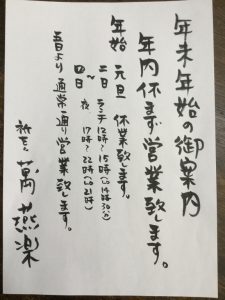 年末年始の御案内
年内休まず営業致します。
年始 元旦 休業致します。
二日 ランチ 12時~15時(LO14時30分)
~
四日 夜 17時~22時(LO21時)
五日より通常通り営業致します。
萬燕楽